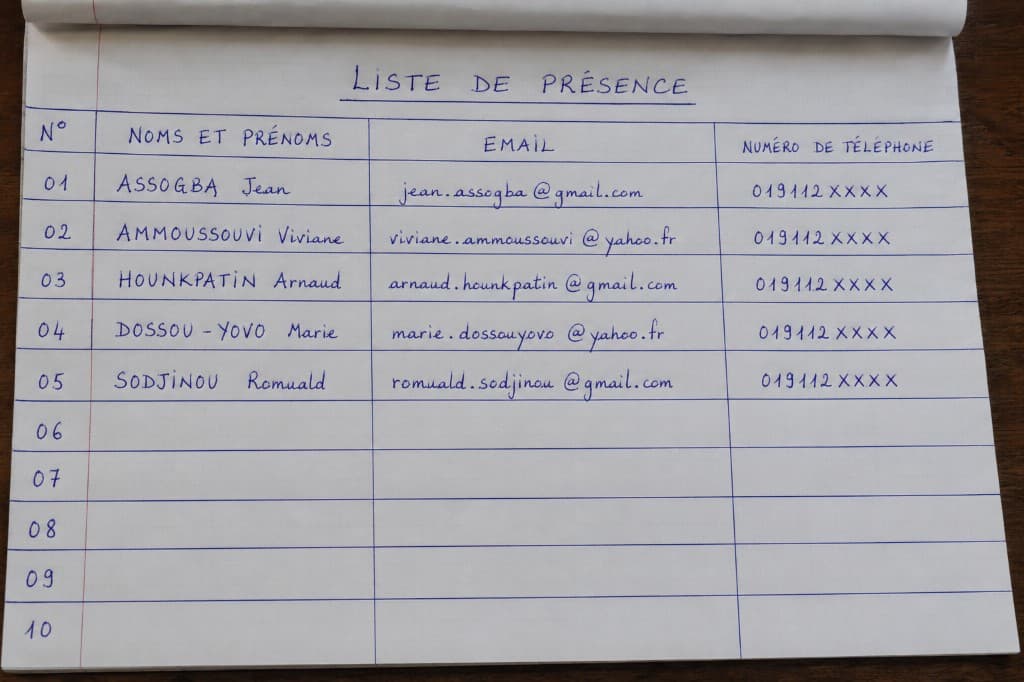 LISTE DE PRÉSENCE
N° NOMS ET PRÉNOMS EMAIL NUMÉRO DE TÉLÉPHONE
01 ASSOGBA Jean jean.assogba@gmail.com 019112XXXX
02 AMMOUSSOUVI Viviane viviane.ammoussouvi@yahoo.fr 019112XXXX
03 HOUNKPATIN Arnaud arnaud.hounkpatin@gmail.com 019112XXXX
04 DOSSOU-YOVO Marie marie.dossouyovo@yahoo.fr 019112XXXX
05 SODJINOU Romuald romuald.sodjinou@gmail.com 019112XXXX
06
07
08
09
10